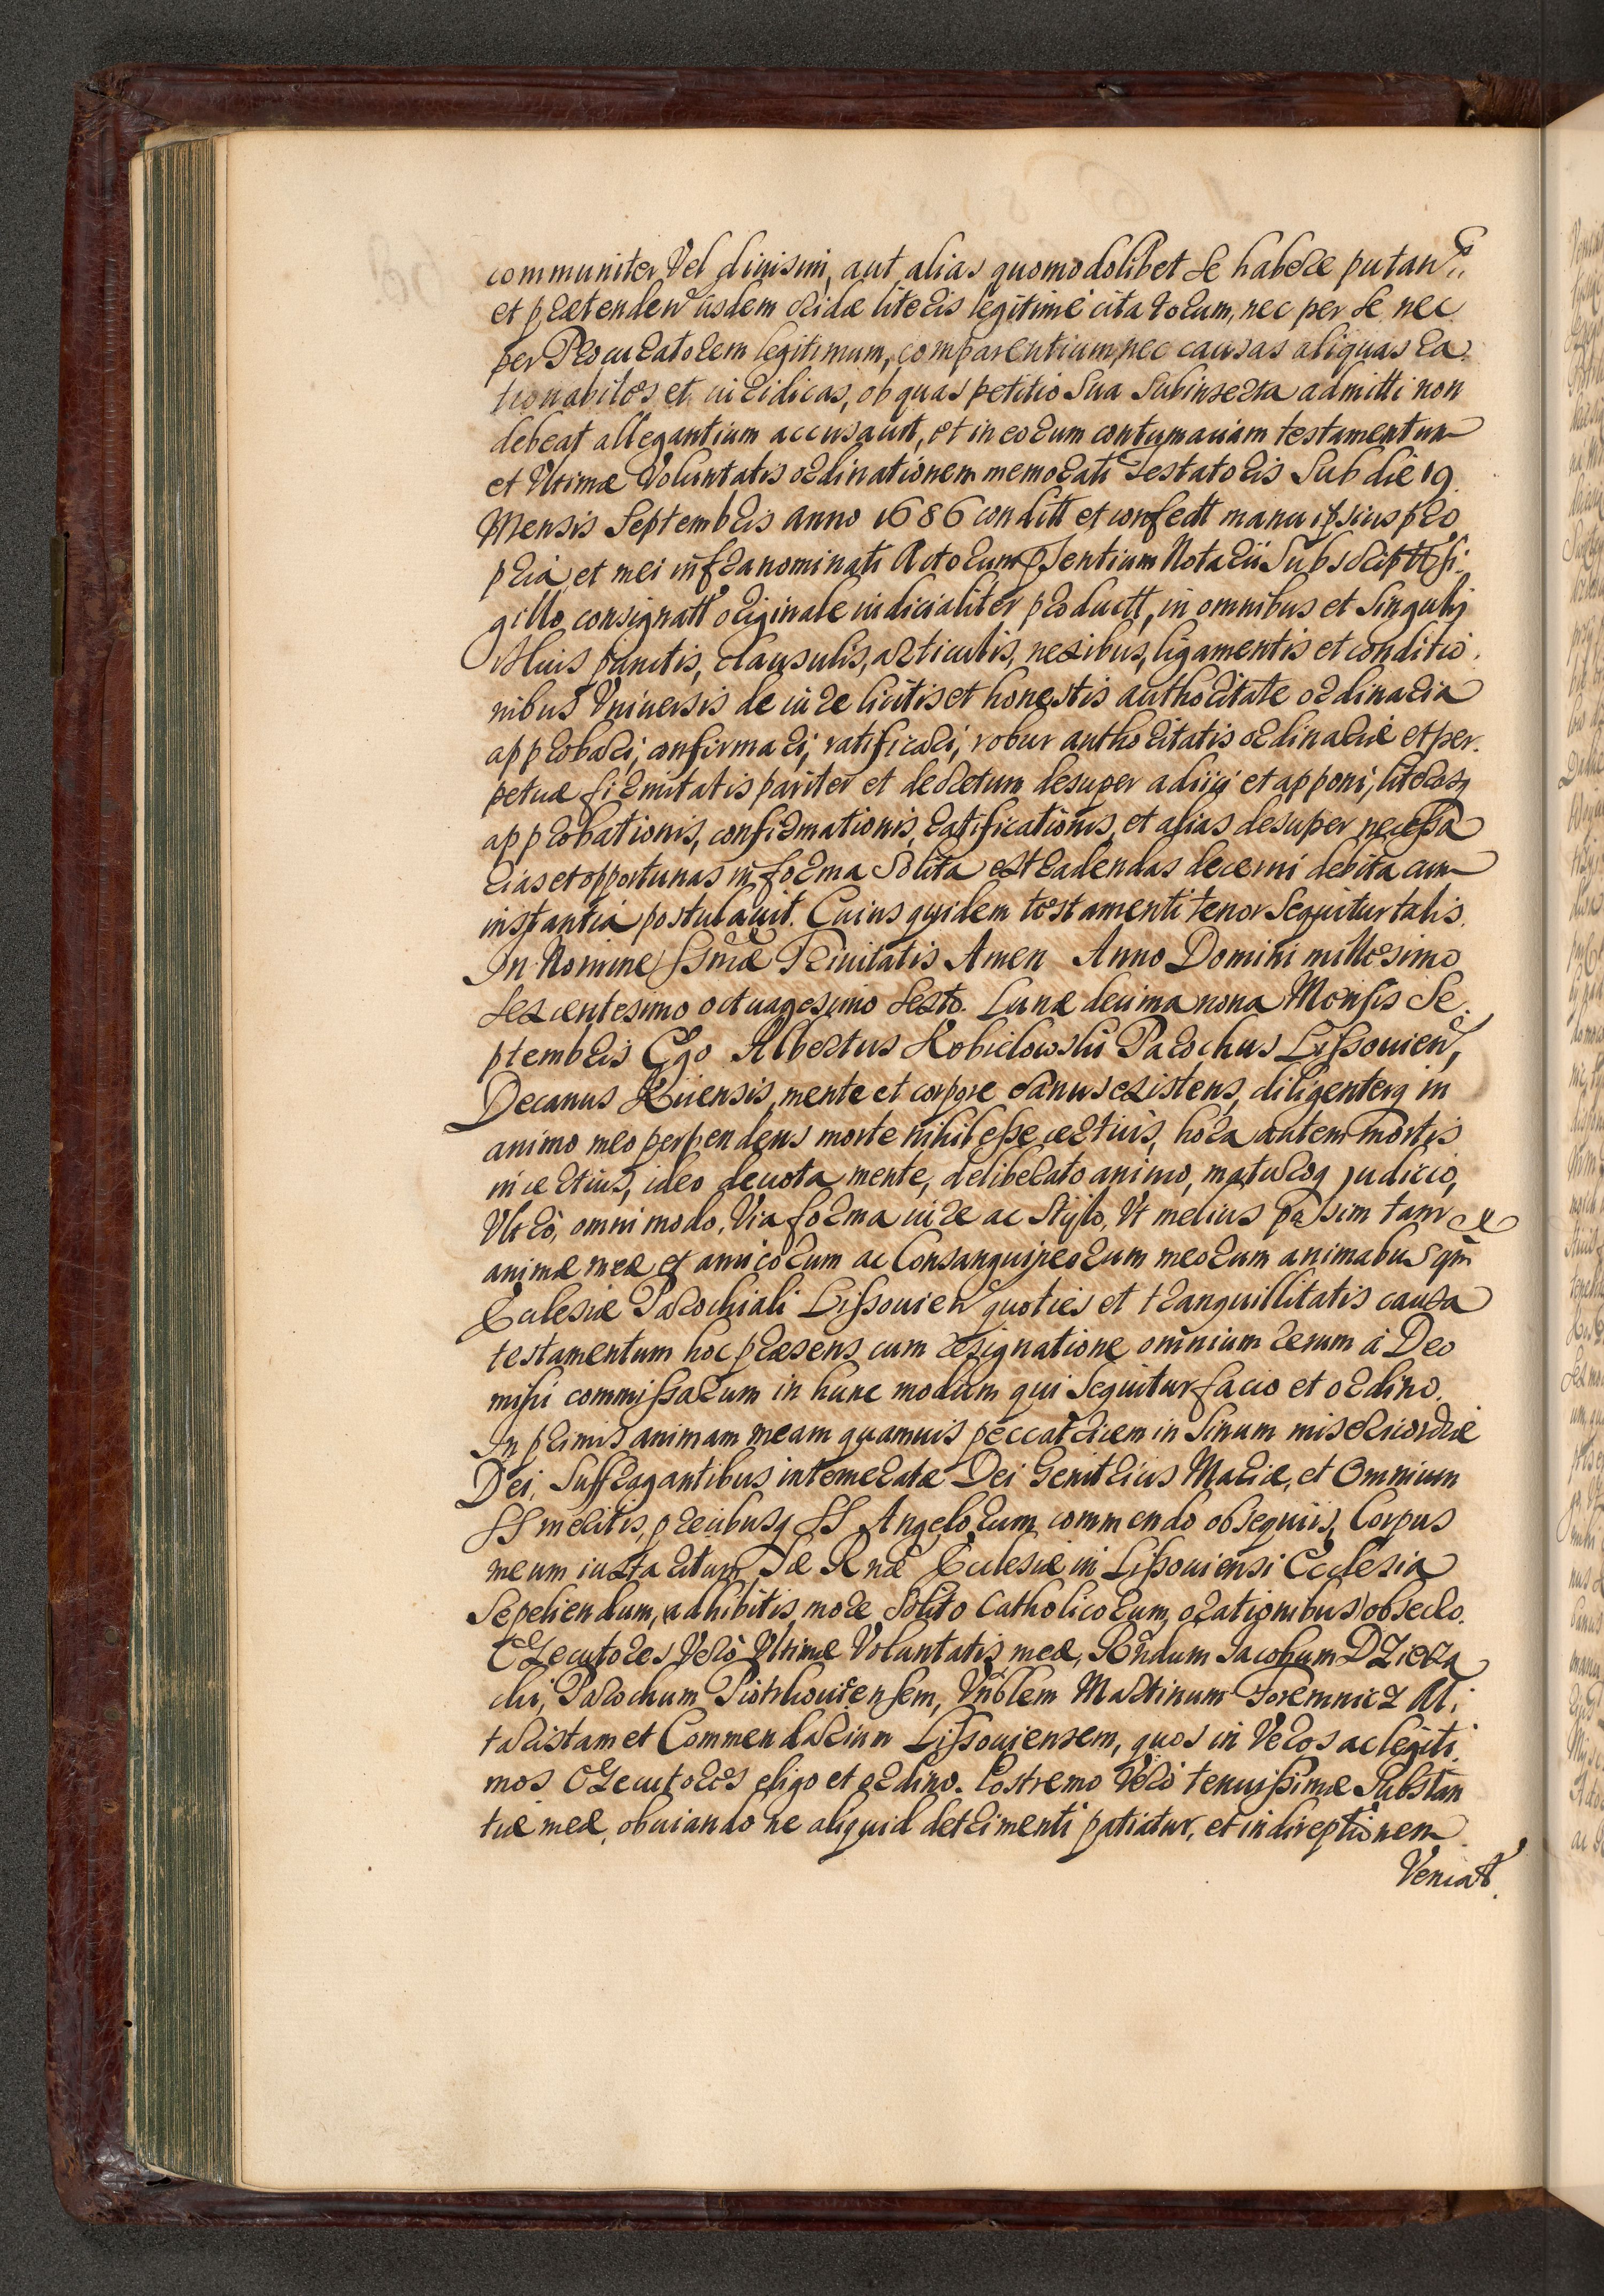 communiter Vel diuisim, aut alias quomodolibet Se habere putan
et prætenden iisdem literis legitime citatorum, nec per Se nec
per Procuratorem legitimum, comparentium, nec causas aliquas ra
tionabiles et iuridicas, ob quas petitio Sua Subinserta admitti non
debeat allegantium accusauit, et in eorum contumaciam testamentum
et Vltimæ Voluntatis ordinationem memorati Testatoris Sub die 19
Mensis Septembris Anno 1686 conditt et confectt manu ipsius pro
pria, et mei infranominati Actorum pñsentium Notarii Subscriptt Si
gillo consignatt originale iudicialiter productt, in omnibus et Singulis
Suis punctis, clausulis, articulis, nexibus, ligamentis et conditio
nibus Vniuersis de iure licitis et honestis authoritate ordinaria
approbari, confirmari, ratificari, robur authoritatis ordinariæ et per
petuæ firmitatis pariter et decretum desuper adiici et apponi, literasq
approbationis, confirmationis, ratificationis, et alias desuper necessa
rias et opportunas in forma Solita extradendas decerni debita cum
instantia postulauit. Cuius quidem testamenti tenor Sequitur talis.
In Nomine SSmæ Trinitatis Amen Anno Domini millesimo
Sexcentesimo octuagesimo Sexto. Lunæ decima nona Mensis Se
ptembris Ego Albertus Kobielowski Parochus Lissouien,
Decanus Xiiensis, mente et corpore Sanus existens, diligenterq in
animo meo perpendens morte nihil esse certius, hora autem mortis
incertius, ideo deuota mente, deliberato animo, maturoq judicio,
Vltrò, omni modo, Via forma iure ac Stylo, Vt melius possim tam
animæ meæ et amicorum ac Consanguineorum meorum animabus qm
Ecclesiæ Parochiali Lissouien quotiés et tranquillitatis causa
testamentum hoc præsens cum resignatione omnium rerum à Deo
mihi commissarum in hunc modum qui Sequitur facio et ordino.
In primis animam meam quamuis peccatricem in Sinum misericordiæ
Dei, Suffragantibus intemeratæ Dei Genitricis Mariæ, et Omnium
SS meritis, precibusq SS Angelorum commendo obsequiis, Corpus
meum iuxta ritum Sæ Rnæ Ecclesiæ in Lissouiensi Ecclesia
Sepeliendum, adhibitis more Solito Catholicorum, orationibus obsecro.
Executores Verò Vltimæ Voluntatis meæ, Rndum Jacobum Dzierza
cki, Parochum Piotrkouicensem, Vnblem Martinum Foremnicz Al
taristam et Commendarium Lissouiensem, quos in Veros ac legiti
mos Executores eligo et ordino. Postremo Verò tenuissimæ Substan
tiæ meæ, obuiando ne aliquid detrimenti patiatur, et in direptionem
Veniat